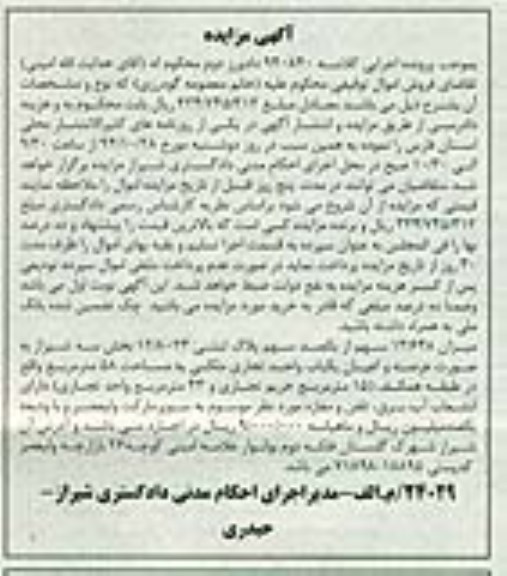 آگهی مزایده
بموجب پرونده اجرایی کلاسه ۹۴۰۸۴۰ دایره دوم محکوم له (آقای هدایت الله امینی)
تقاضای فروش اموال توقیفی محکوم علیه (خانم معصومه گودرزی) که نوع و مشخصات
آن بشرح ذیل می باشد بمبلغ ریال بابت محکوم به و هزینه
دادرسی از طریق مزایده و انتشار آگهی در یکی از روزنامه های کثیرالانتشار محلی
استان فارس را نموده به همین سبب در روز دوشنبه مورخ از ساعت ۹/۳۰
الی ۱۰/۳۰ صبح در محل اجرای احکام مدنی دادگستری شیراز مزایده برگزار خواهد
شد متقاضیان می توانند در مدت پنج روز قبل از تاریخ مزایده اموال را ملاحظه نمایند
قیمتی که مزایده از آن شروع می شود براساس نظریه کارشناس رسمی دادگستری مبلغ
ریال و برنده مزایده کسی است که بالاترین قیمت را پیشنهاد و ده درصد
بها را فی المجلس به عنوان سپرده به قسمت اجرا تسلیم و بقیه بهای اموال را ظرف مدت
۳۰ روز از تاریخ مزایده پرداخت نماید در صورت عدم پرداخت مابقی اموال سپرده تودیعی
پس از کسر هزینه مزایده به نفع دولت ضبط خواهد شد. این آگهی نوبت اول می باشد
وضمناً ده درصد مبلغی که قادر به خرید مورد مزایده می باشید چک تضمین شده بانک
ملی به همراه داشته باشید.
میزان سهم از یکصد سهم پلاک ثبتی بخش سه شیراز به
صورت عرصه و اعیان یکباب واحد تجاری ملکی به مساحت ۵۸ مترمربع واقع
در طبقه همکف (۱۵ مترمربع حریم تجاری و ۴۳ مترمربع واحد تجاری) دارای
انشعاب آب، برق، تلفن و مغازه مورد نظر موسوم به سوپرمارکت ولیعصر و با ودیعه
یکصدمیلیون ریال و ماهیانه ریال در اجاره می باشد و آدرس آن
شیراز شهرک گلستان فلکه دوم بولوار علامه امینی کوچه ۲۴ بازارچه ولیعصر
کدپستی می باشد.
۲۴۰۲۹/م.الف-مدیر اجرای احکام مدنی دادگستری شیراز-
حیدری